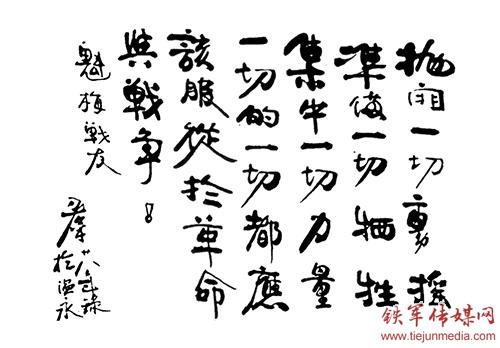 抛開一切動摇
準備一切牺牲
集中一切力量
一切的一切都應
該服從於革命
與戰争!
戰友
廿八年
於温永
铁军传媒网
www.tiejunmedia.com